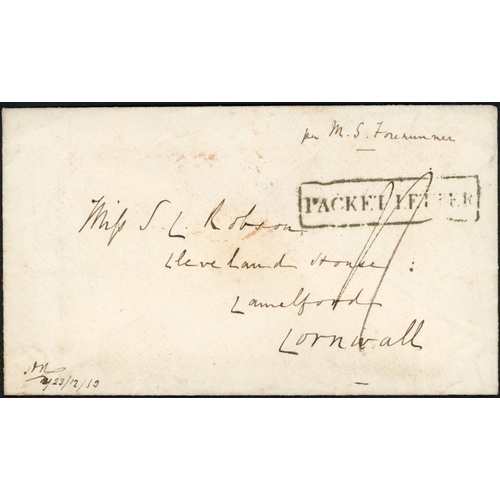 per M. S. Forerunner
PACKET LETTER
Miss S. L. Robson
Cleveland House
Camelford
Cornwall
23/12/53